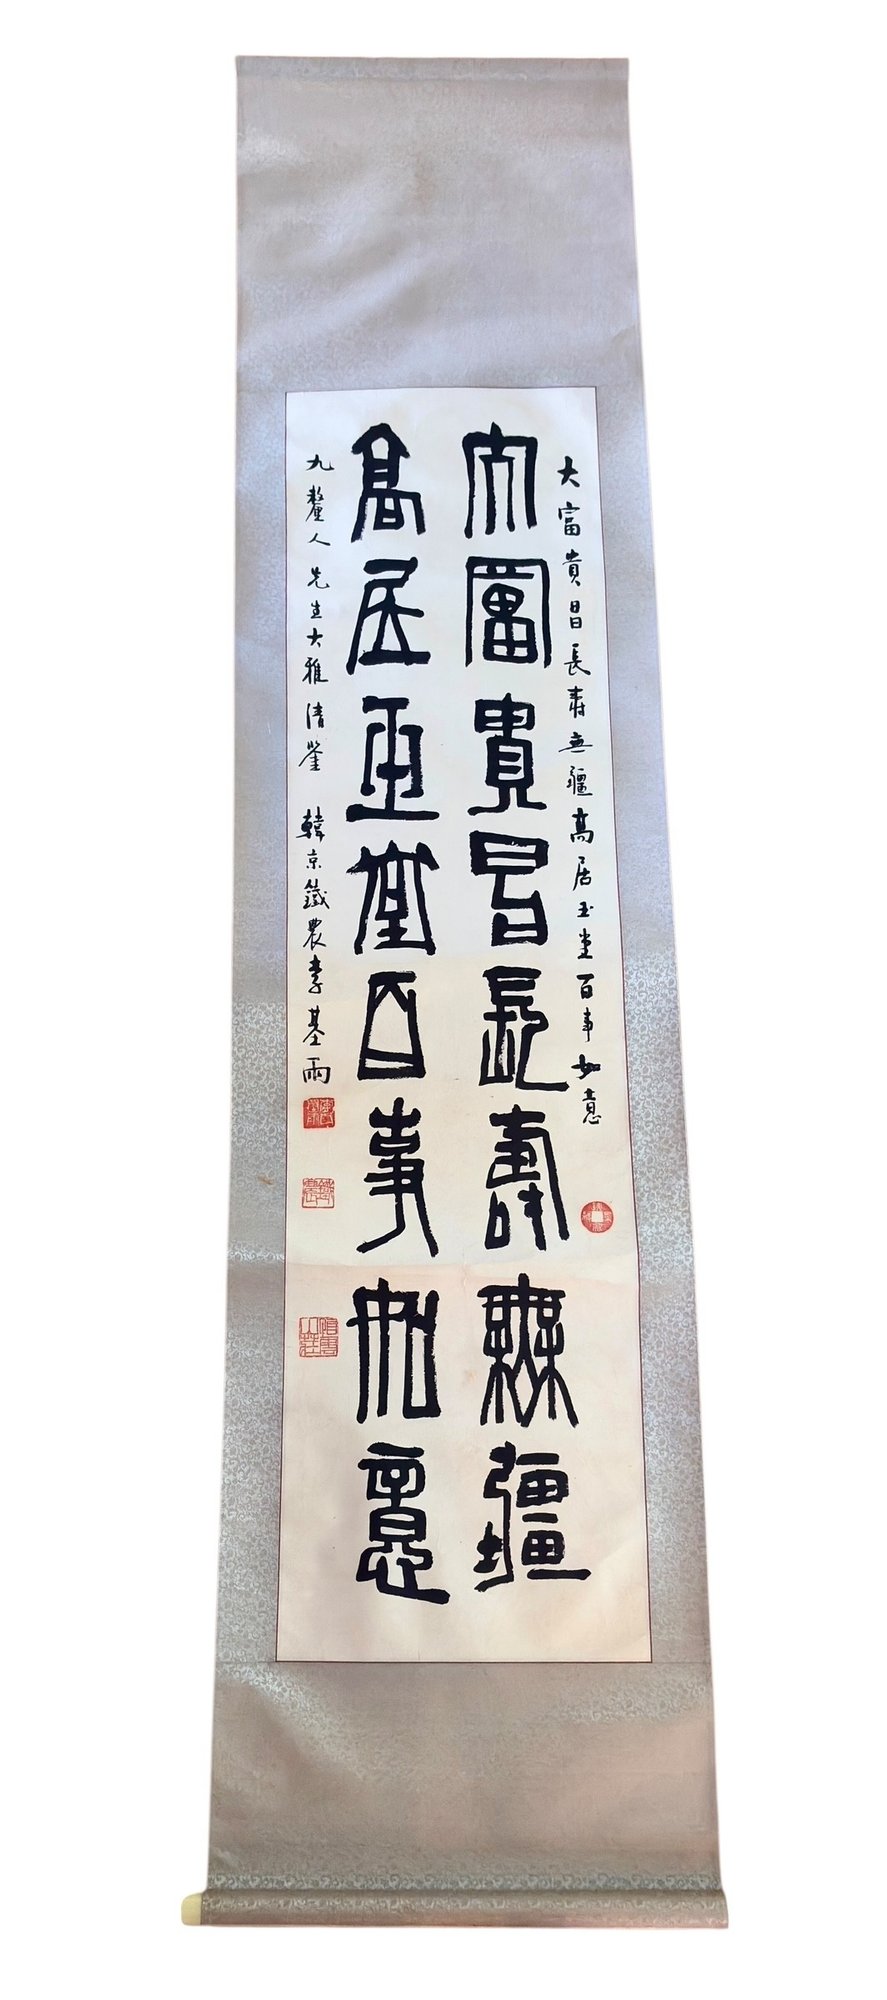 大富貴昌長壽無疆高居玉堂百事如意
大富貴昌長壽無疆
高居玉堂百事如意
九鰲人先生大雅清鑒 韓京鐵農李基雨